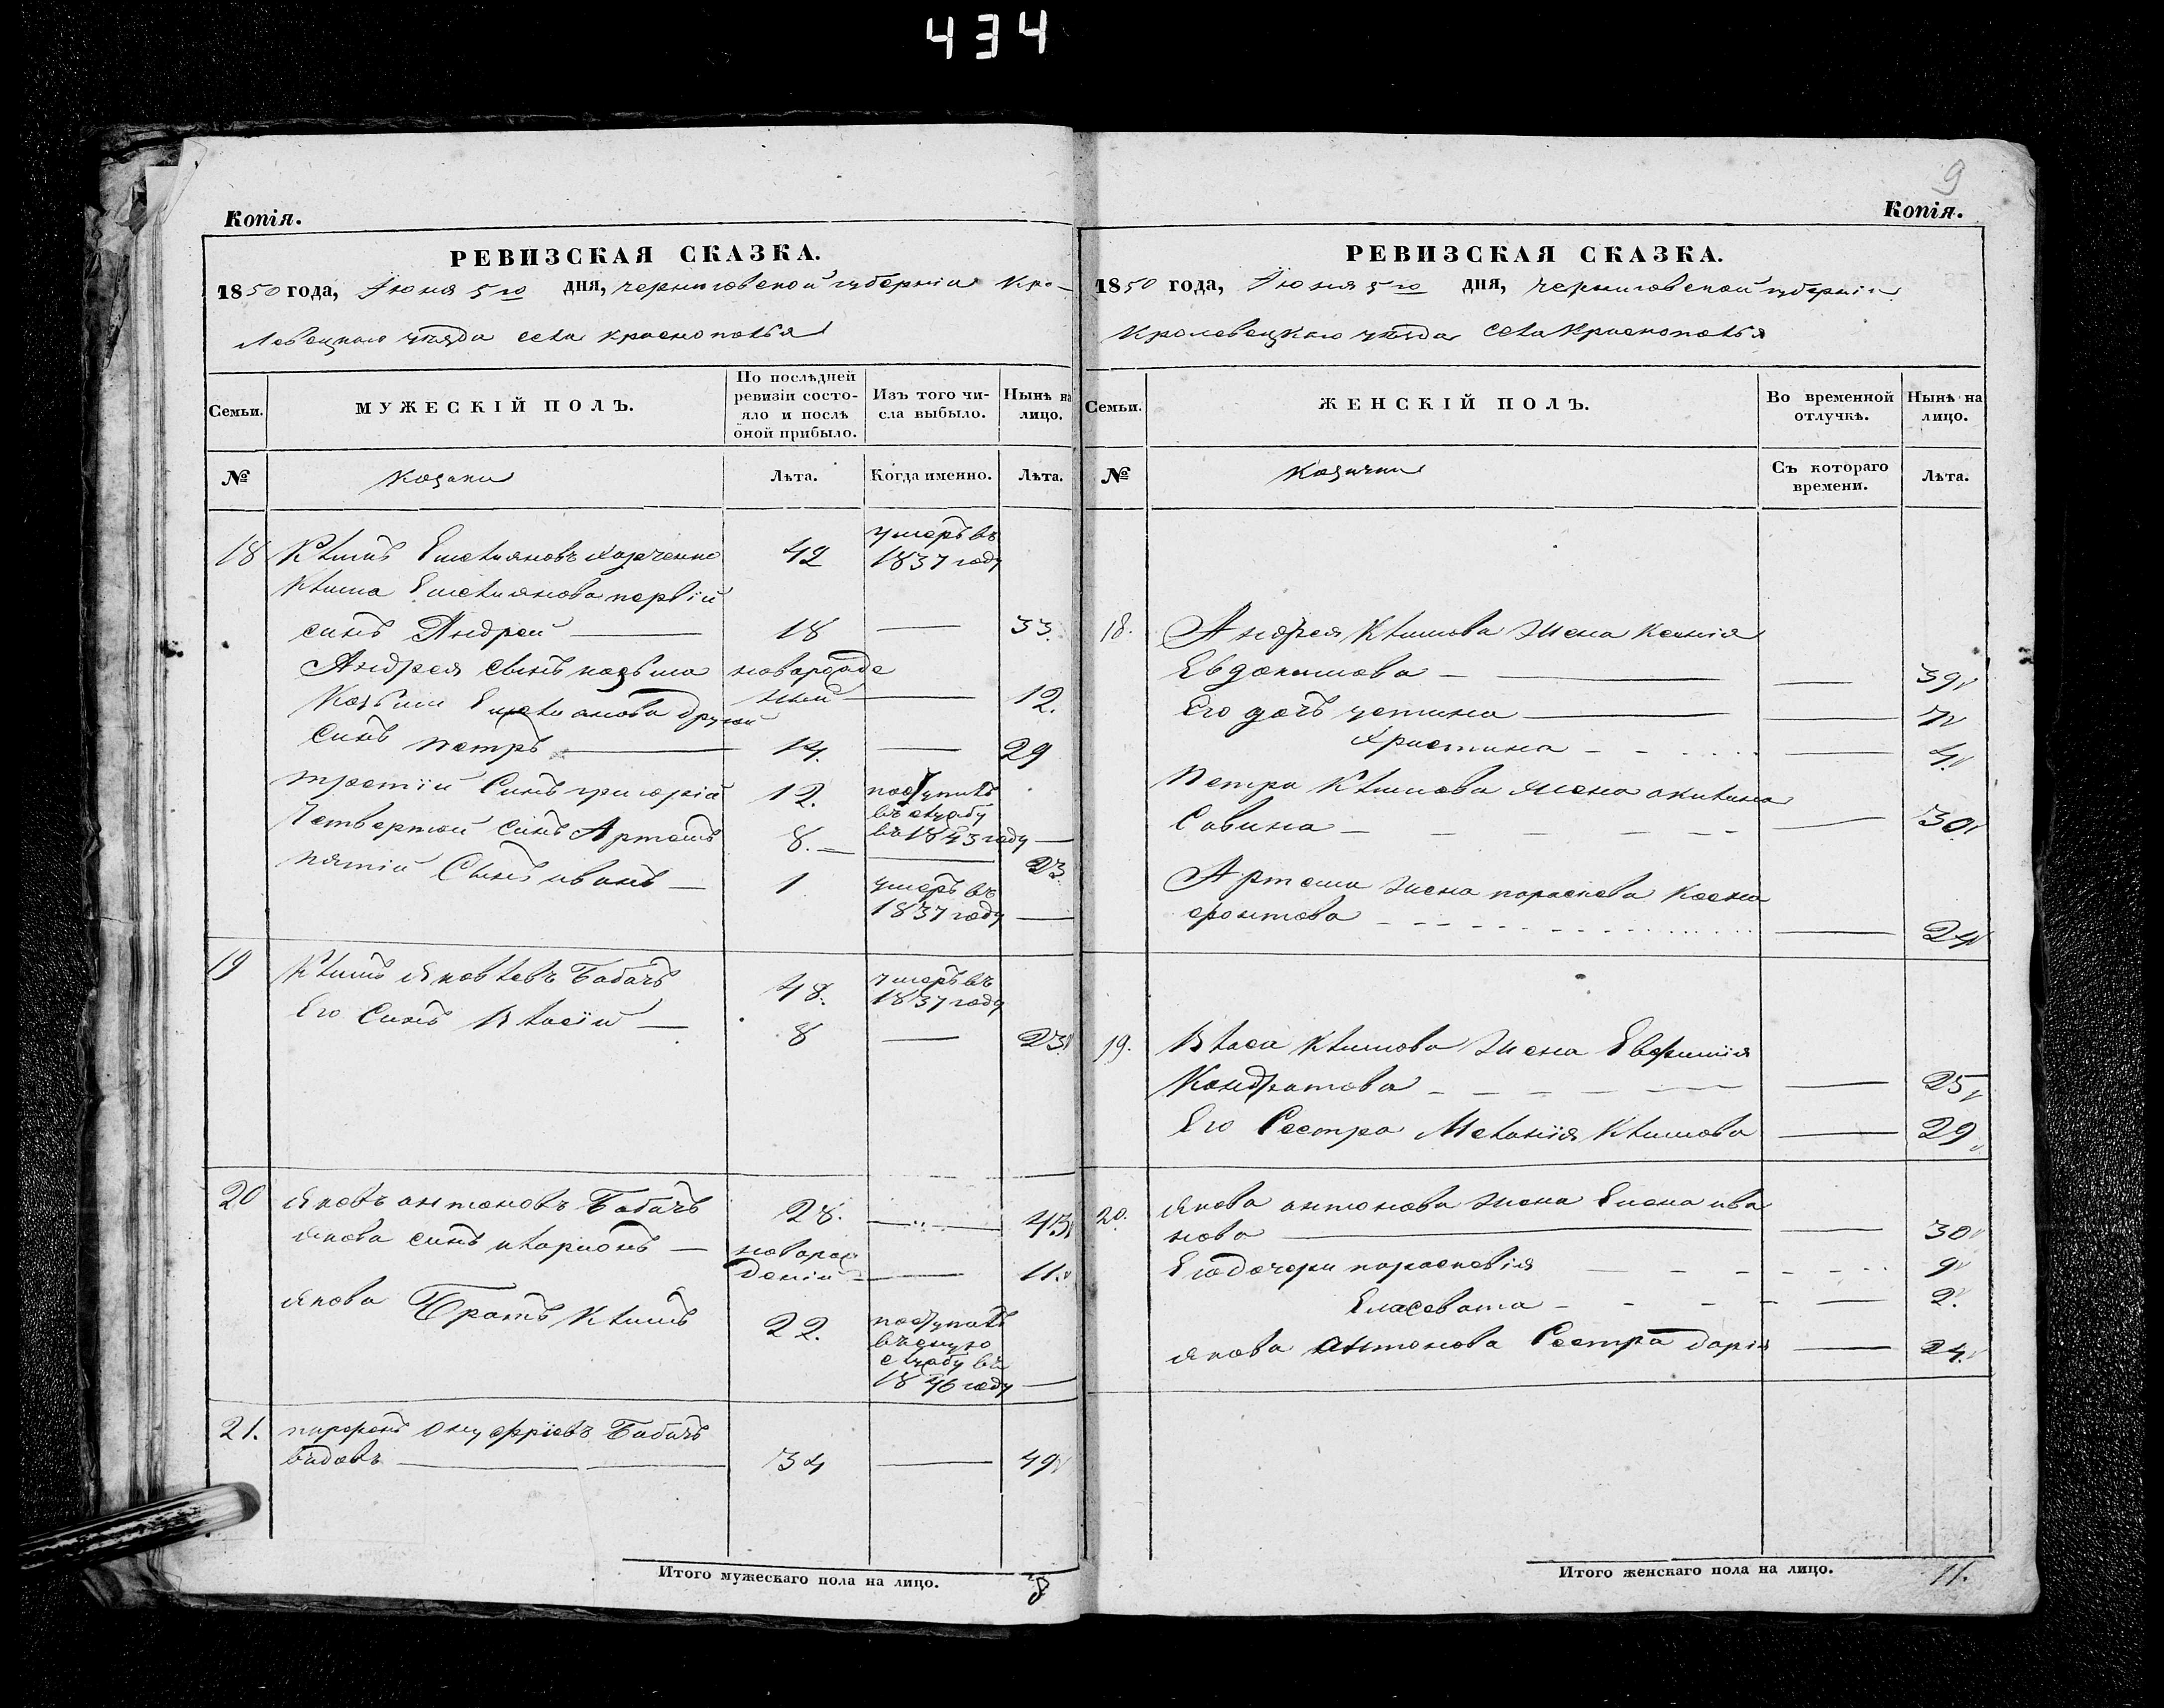 434
9
Копія.
РЕВИЗСКАЯ СКАЗКА.
1850 года, Июня 5го дня, черниговской губерніи Кро-
левецкаго уѣзда села краснополья
Семьи.
МУЖЕСКІЙ ПОЛЪ.
По послѣдней
ревизіи состо-
яло и послѣ
оной прибыло.
Изъ того чи-
сла выбыло.
Нынѣ на
лицо.
№
козаки
Лѣта.
Когда именно.
Лѣта.
18 Климъ Емельяновъ 42 умеръ въ
1837 году
Клима Емельянова первій
синъ Андрей 18 — 33.
Андрея сынъ козьма новорожде
ный — 12.
Емельянова другой
Синъ петръ 14. — 29
третій Синъ григорій 12. поступилъ
въ службу
въ 1843 году —
Четвертой синъ Артемъ 8. — 23
пятій Сынъ иванъ — 1 умеръ въ
1837 году —
19 Климъ Яковлевъ Бабачъ 48. умеръ въ
1837 году
Его Синъ Власій — 8 — 23
20 Яковъ антоновъ Бабачъ 28. — 43
Якова синъ иларионъ — новорож
деній — 11.
Якова Братъ Климъ 22. поступилъ
службу въ
1846 году —
21. парфенъ онуфріевъ Бабачъ
вдовъ 34 — 49
Итого мужескаго пола на лицо. 8
Копія.
РЕВИЗСКАЯ СКАЗКА.
1850 года, Июня 5го дня, черниговской губерніи
Кролевецкаго уѣзда села Краснополья
Семьи.
ЖЕНСКІЙ ПОЛЪ.
Во временной
отлучкѣ.
Нынѣ на
лицо.
№
козачки
Съ котораго
времени.
Лѣта.
18. Андрея Климова жена Ксенія
Евдокимова — — 39
Его дочъ устина — — 7
христина — — 4.
Петра Климова жена акилина
Савина — — 30
Артема жена параскева Ксено
фонтова — — 24
19. Власа Климова жена Евфимія
Кондратова — — 25
Его Сестра Меланія Климова — 29
20. Якова антонова жена Елена ива
нова — — 30
Его дочери параскевія — 9
Елисавета — — 2.
Якова антонова Сестра дарія — 24.
Итого женскаго пола на лицо. 11.